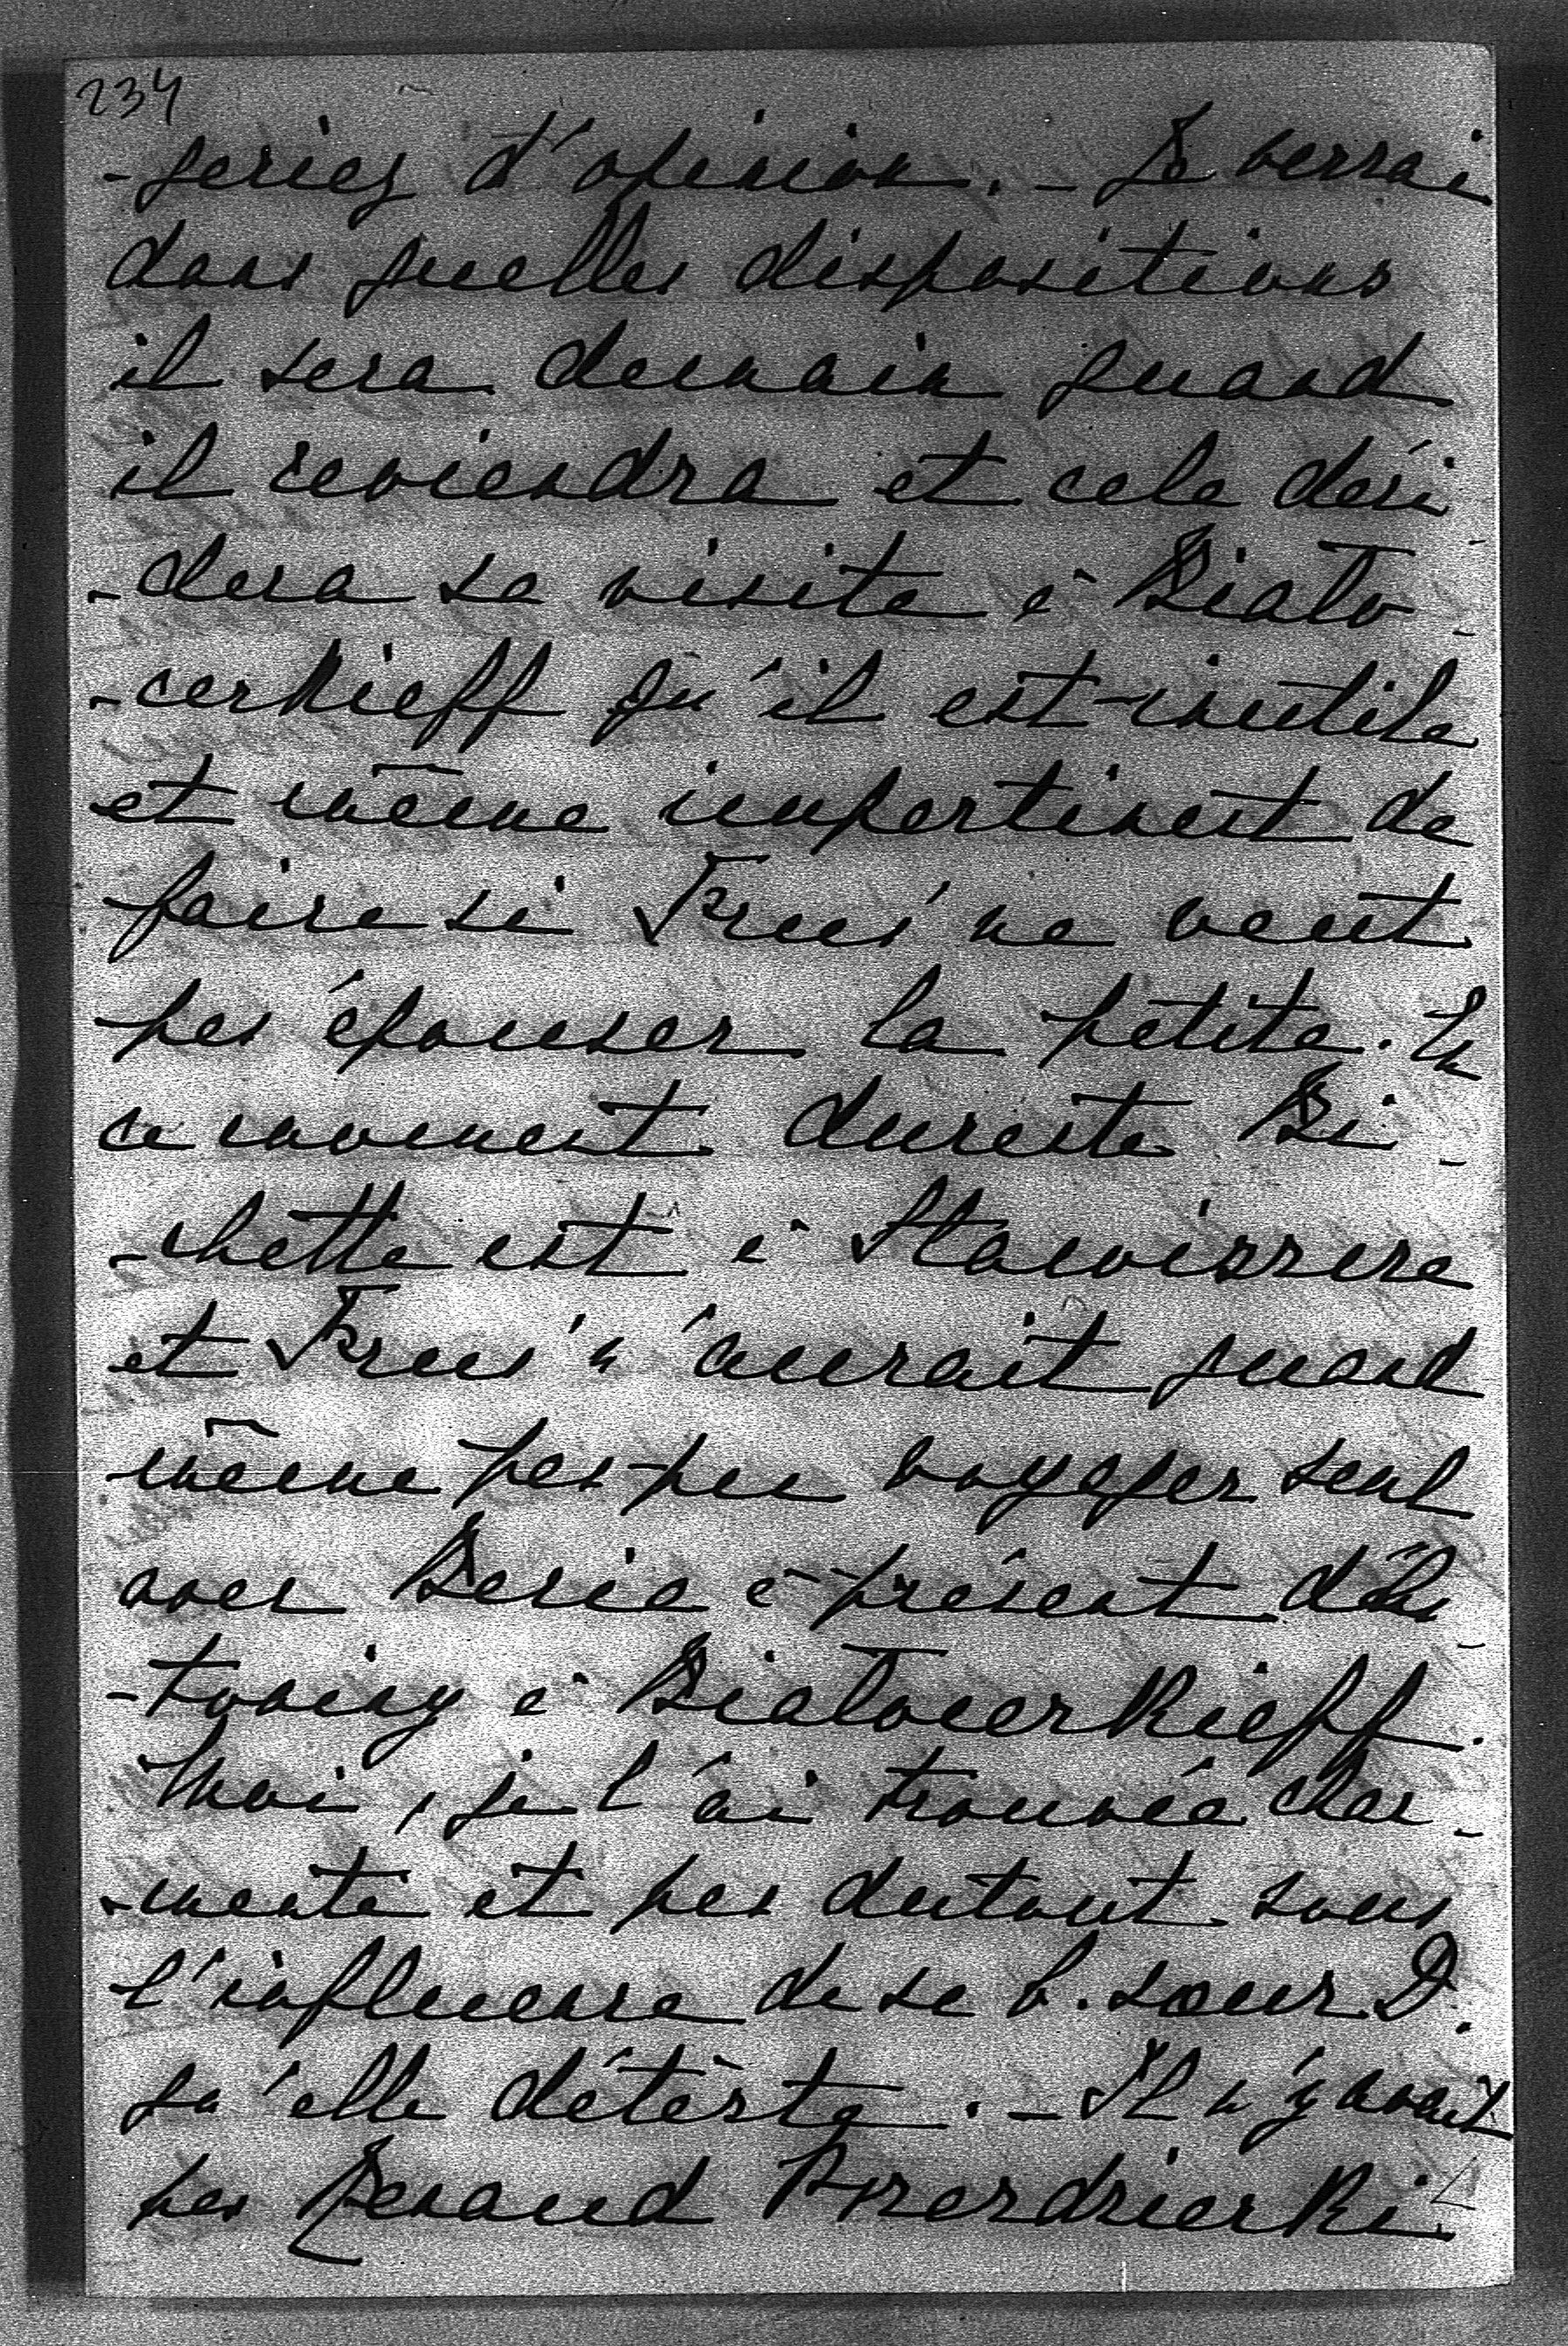 234
-geriez d'opinion. - Je verrai
dans quelles dispositions
il sera demain quand
il reviendra et cela déci
-dera sa visite à Biało-
-cerkieff qu'il est inutile
et même impertinent de
faire si ne veut
pas épouser la petite. En
ce moment dureste Bi-
-chette est à
et n'aurait quand
même pas pu voyager seul
avec à présent d'An-
-toniny à Białocerkieff.
Moi, je l'ai trouvée char-
-mante et pas dutout sous
l'influence de sa b. sœur D.
qu'elle détèste. - Il n'y avait
pas